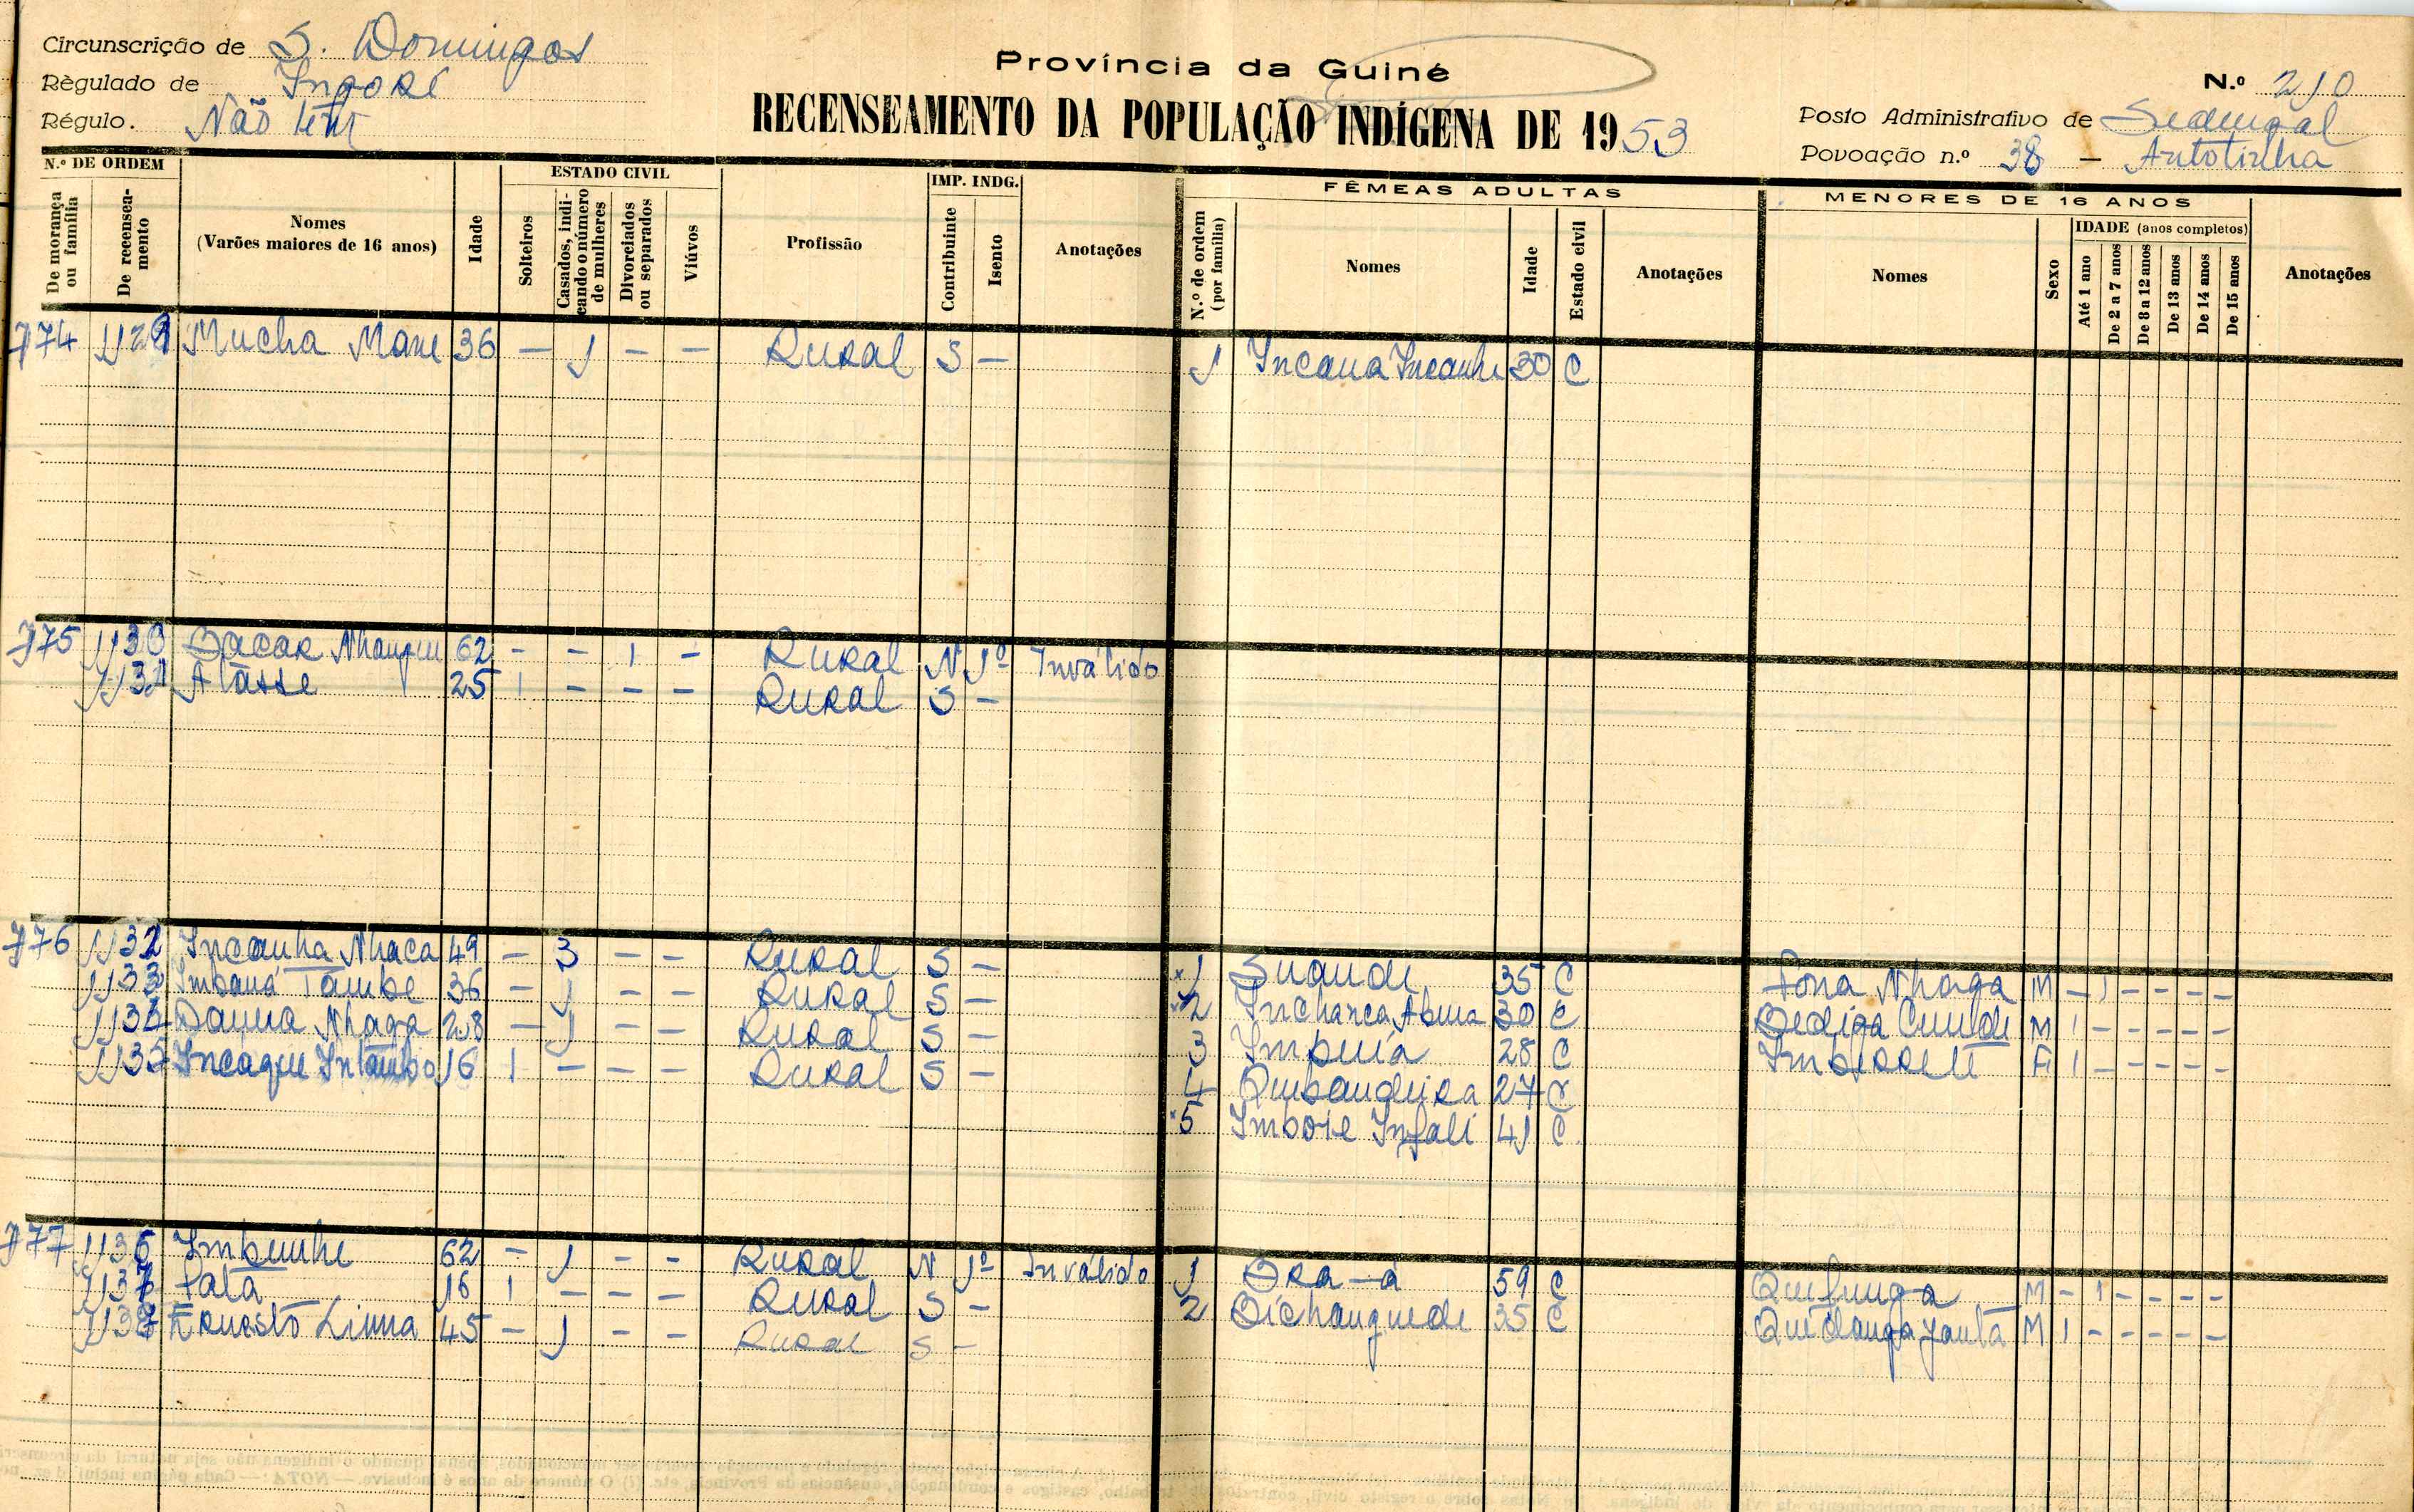 Circunscrição de S. Domingos
Règulado de Ingoré
Régulo. Não tem
Província da Guiné
RECENSEAMENTO DA POPULAÇÃO INDÍGENA DE 1953
N.º 210
Posto Administrativo de Sedengal
Povoação n.º 38 — Antotinha
N.º DE ORDEM
De morança ou família
De recenseamento
Nomes
(Varões maiores de 16 anos)
Idade
ESTADO CIVIL
Solteiros
Casados, indicando o número de mulheres
Divorciados ou separados
Viúvos
Profissão
IMP. INDG.
Contribuinte
Isento
Anotações
FÊMEAS ADULTAS
N.º de ordem (por família)
Nomes
Idade
Estado civil
Anotações
MENORES DE 16 ANOS
Nomes
Sexo
IDADE (anos completos)
Até 1 ano
De 2 a 7 anos
De 8 a 12 anos
De 13 anos
De 14 anos
De 15 anos
Anotações
774 1129 Mucha Mane 36 — 1 — — Rural S — 1 Incana Incanhe 30 C
775 1130 Bacar 62 - - 1 - Rural N 1º Inválido
1131 Atasse 25 1 - - - Rural S —
776 1132 Incanha Nhaca 49 — 3 — — Rural S — 1 Suandi 35 C Fona Nhaga M — 1 — — — —
1133 Imbana Tambe 36 — 1 — — Rural S — 2 Incharca 30 C M 1 — — — — —
1134 Danna Nhaga 28 — 1 — — Rural S — 3 Impuía 28 C Imbisseli F 1 — — — — —
1135 Incaque Intambo 16 1 — — — Rural S — 4 Quibandeira 27 C
5 Imbore Infali 41 C
777 1136 Imbunhe 62 — 1 — — Rural N 1º Inválido 1 Ora-á 59 C Quifunga M — 1 — — — —
1137 Fata 16 1 — — — Rural S — 2 Dichanquedi 35 C M 1 — — — — —
1138 Ernesto Linna 45 — 1 — — Rural S —